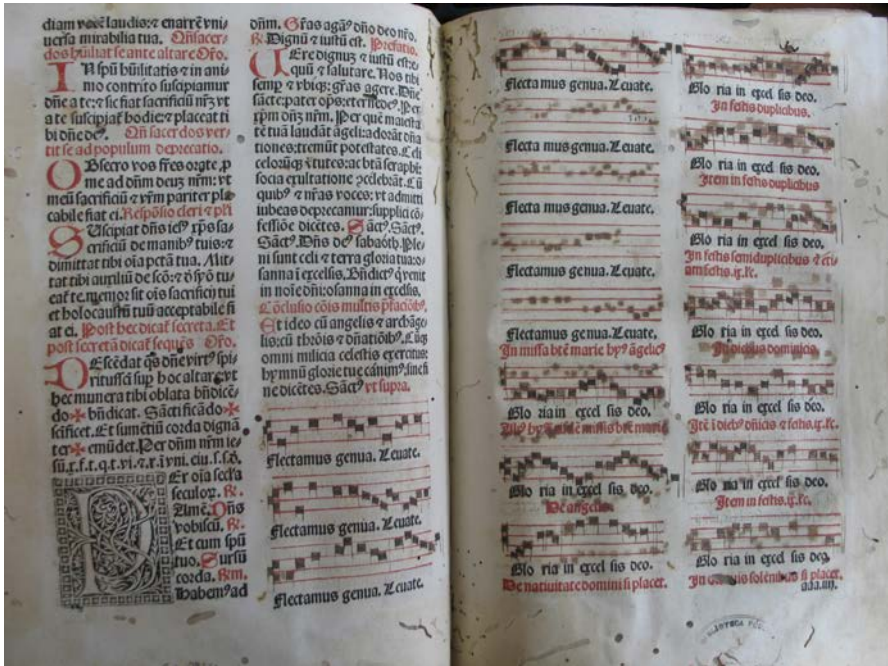 diam vocē laudis: ⁊ enarrē vni-
uersa mirabilia tua. Qñ sacer-
dos hūiliat se ante altare Oro.
IN spū hūilitatis ⁊ in ani-
mo contrito suscipiamur
dñe a te: ⁊ sic fiat sacrificiū nr̄ꝫ vt
a te suscipiat͛ hodie: ⁊ placeat ti
bi dñe deꝰ. Qñ sacerdos ver-
tit se ad populum deprecatio.
OBsecro vos fr̄es orate ꝓ
me ad dn̄m deuꝫ nr̄m: vt
meū sacrificiū ⁊ vr̄m pariter pla
cabile fiat ei. Respōsio cleri ⁊ pl̄i
SUscipiat dn̄s iesꝰ xp̄s sa-
crificiū de manibꝰ tuis: ⁊
dimittat tibi oīa petā tua. Mit-
tat tibi auxiliū de scō: ⁊ d̄ spō tu-
eat͛ te. memor sit oīs sacrificij tui
et holocaustū tuū acceptabile fi
at ei. Post hec dicat͛ secreta. Et
post secretā dicat͛ sequēs Oro.
DEscēdat qs dñe virtꝰ spi-
ritussc̄i sup hoc altare: vt
hec munera tibi oblata bn̄dicē-
do ✠ bn̄dicat. Sāctificādo ✠
sc̄ificet. Et sumētiū corda dignā
ter ✠ emūdet. Per dn̄m nr̄m ie-
sū. x. f. t. q. t. vi. ⁊. r. ī vni. eiu. s. s. d.
PEr oīa sec̄la
seculoꝝ. ℞.
Amē. Dn̄s
vobiscū. ℞.
Et cum spū
tuo. Sursū
corda. ℞m.
Habemꝰ ad
dn̄m. Gr̄as agaꝰ dn̄o deo nr̄o.
℞. Dignū ⁊ iustū est. Prefatio.
UEre dignuꝫ ⁊ iustū est: e-
quū ⁊ salutare. Nos tibi
semꝑ ⁊ vbiqꝫ: gr̄as agere. Dñe
sācte: pater op̄s: eterne deꝰ. Per
xp̄m dn̄ꝫ nr̄m. Per quē maiesta
tē tuā laudāt āgeli: adorāt dn̄a
tiones: tremūt potestates. Celi
celorūqꝫ v̄tutes: ac btā seraphī:
socia exultatione ꝯcelebrāt. Cū
quibꝰ ⁊ nr̄as voces: vt admitti
iubeas deprecamur: supplici cō-
fessiōe dicētes. Sāctꝰ. Sāctꝰ.
Sāctꝰ. Dn̄s deꝰ sabaoth. Ple
ni sunt celi ⁊ terra gloria tua: o-
sanna ī excelsis. Bn̄dictꝰ q̄ venit
in noīe dn̄i: osanna in excelsis.
Cōclusio cōis multis p̄faciōibꝰ.
Et ideo cū angelis ⁊ archāge
lis: cū thrōis ⁊ dn̄atiōibꝰ. Cūqꝫ
omni milicia celestis exercitus:
hymnū glorie tue canimꝰ: sine fi
ne dicētes. Sāctꝰ vt supra.
Flectamus genua. Leuate.
Flectamus genua. Leuate.
Flectamus genua. Leuate.
Flecta mus genua. Leuate.
Flecta mus genua. Leuate.
Flecta mus genua. Leuate.
Flectamus genua. Leuate.
Flectamus genua. Leuate.
In missa btē marie hyꝰ āgelicꝰ
Glo ria in excel sis deo.
missis btē marie
Glo ria in excel sis deo.
De angelis
Glo ria in excel sis deo.
De natiuitate domini si placet.
Glo ria in excel sis deo.
In festis duplicibus.
Glo ria in excel sis deo.
Item in festis duplicibus
Glo ria in excel sis deo.
In festis semiduplicibus ⁊ eti-
am festis. ix. lc.
Glo ria in excel sis deo.
In diebus dominicis.
Glo ria in excel sis deo.
Itē ī diebꝰ dn̄icis ⁊ festis. ix. lc.
Glo ria in excel sis deo.
Item in festis. ix. lc.
Glo ria in excel sis deo.
solēnibus si placet.
aaa. iiij.